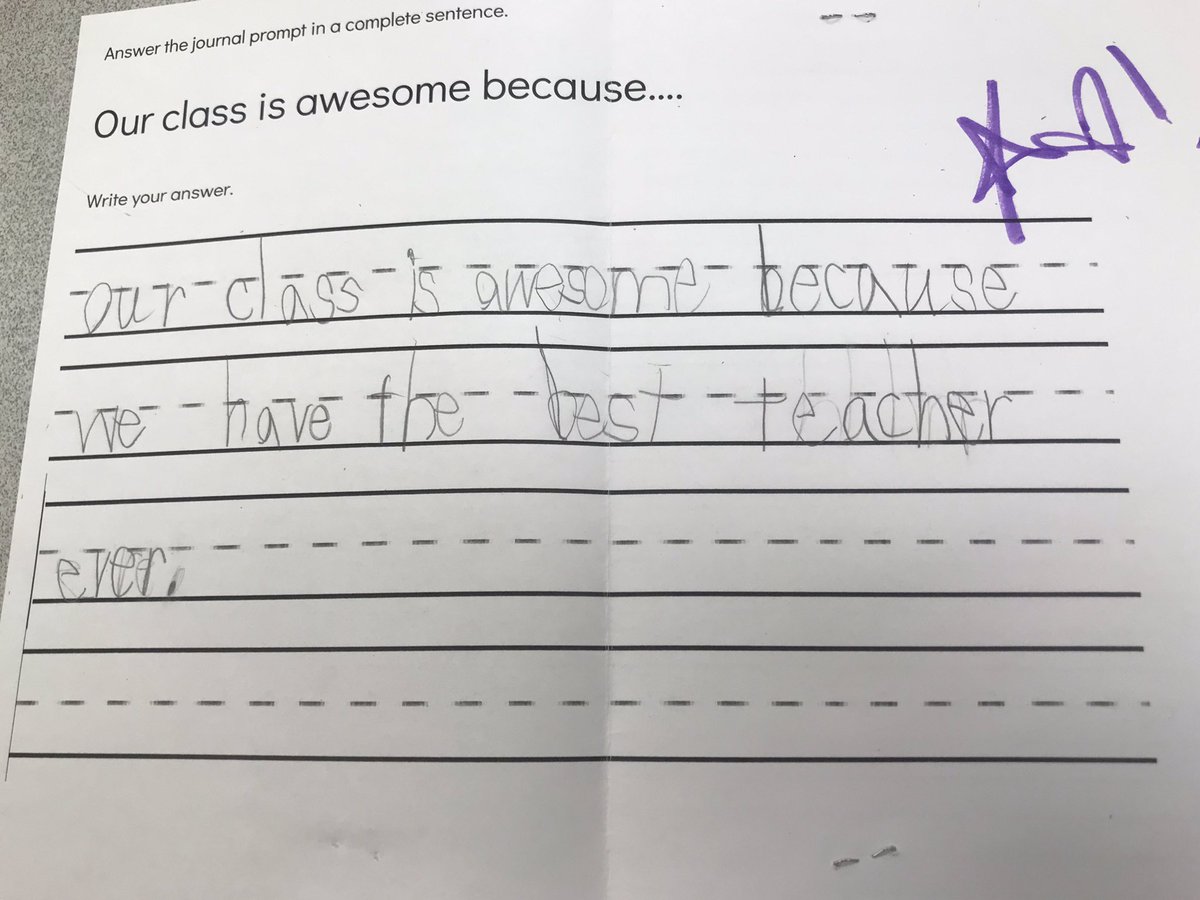 Answer the journal prompt in a complete sentence.
Our class is awesome because....
Write your answer.
our class is awesome because
we have the best teacher
ever.